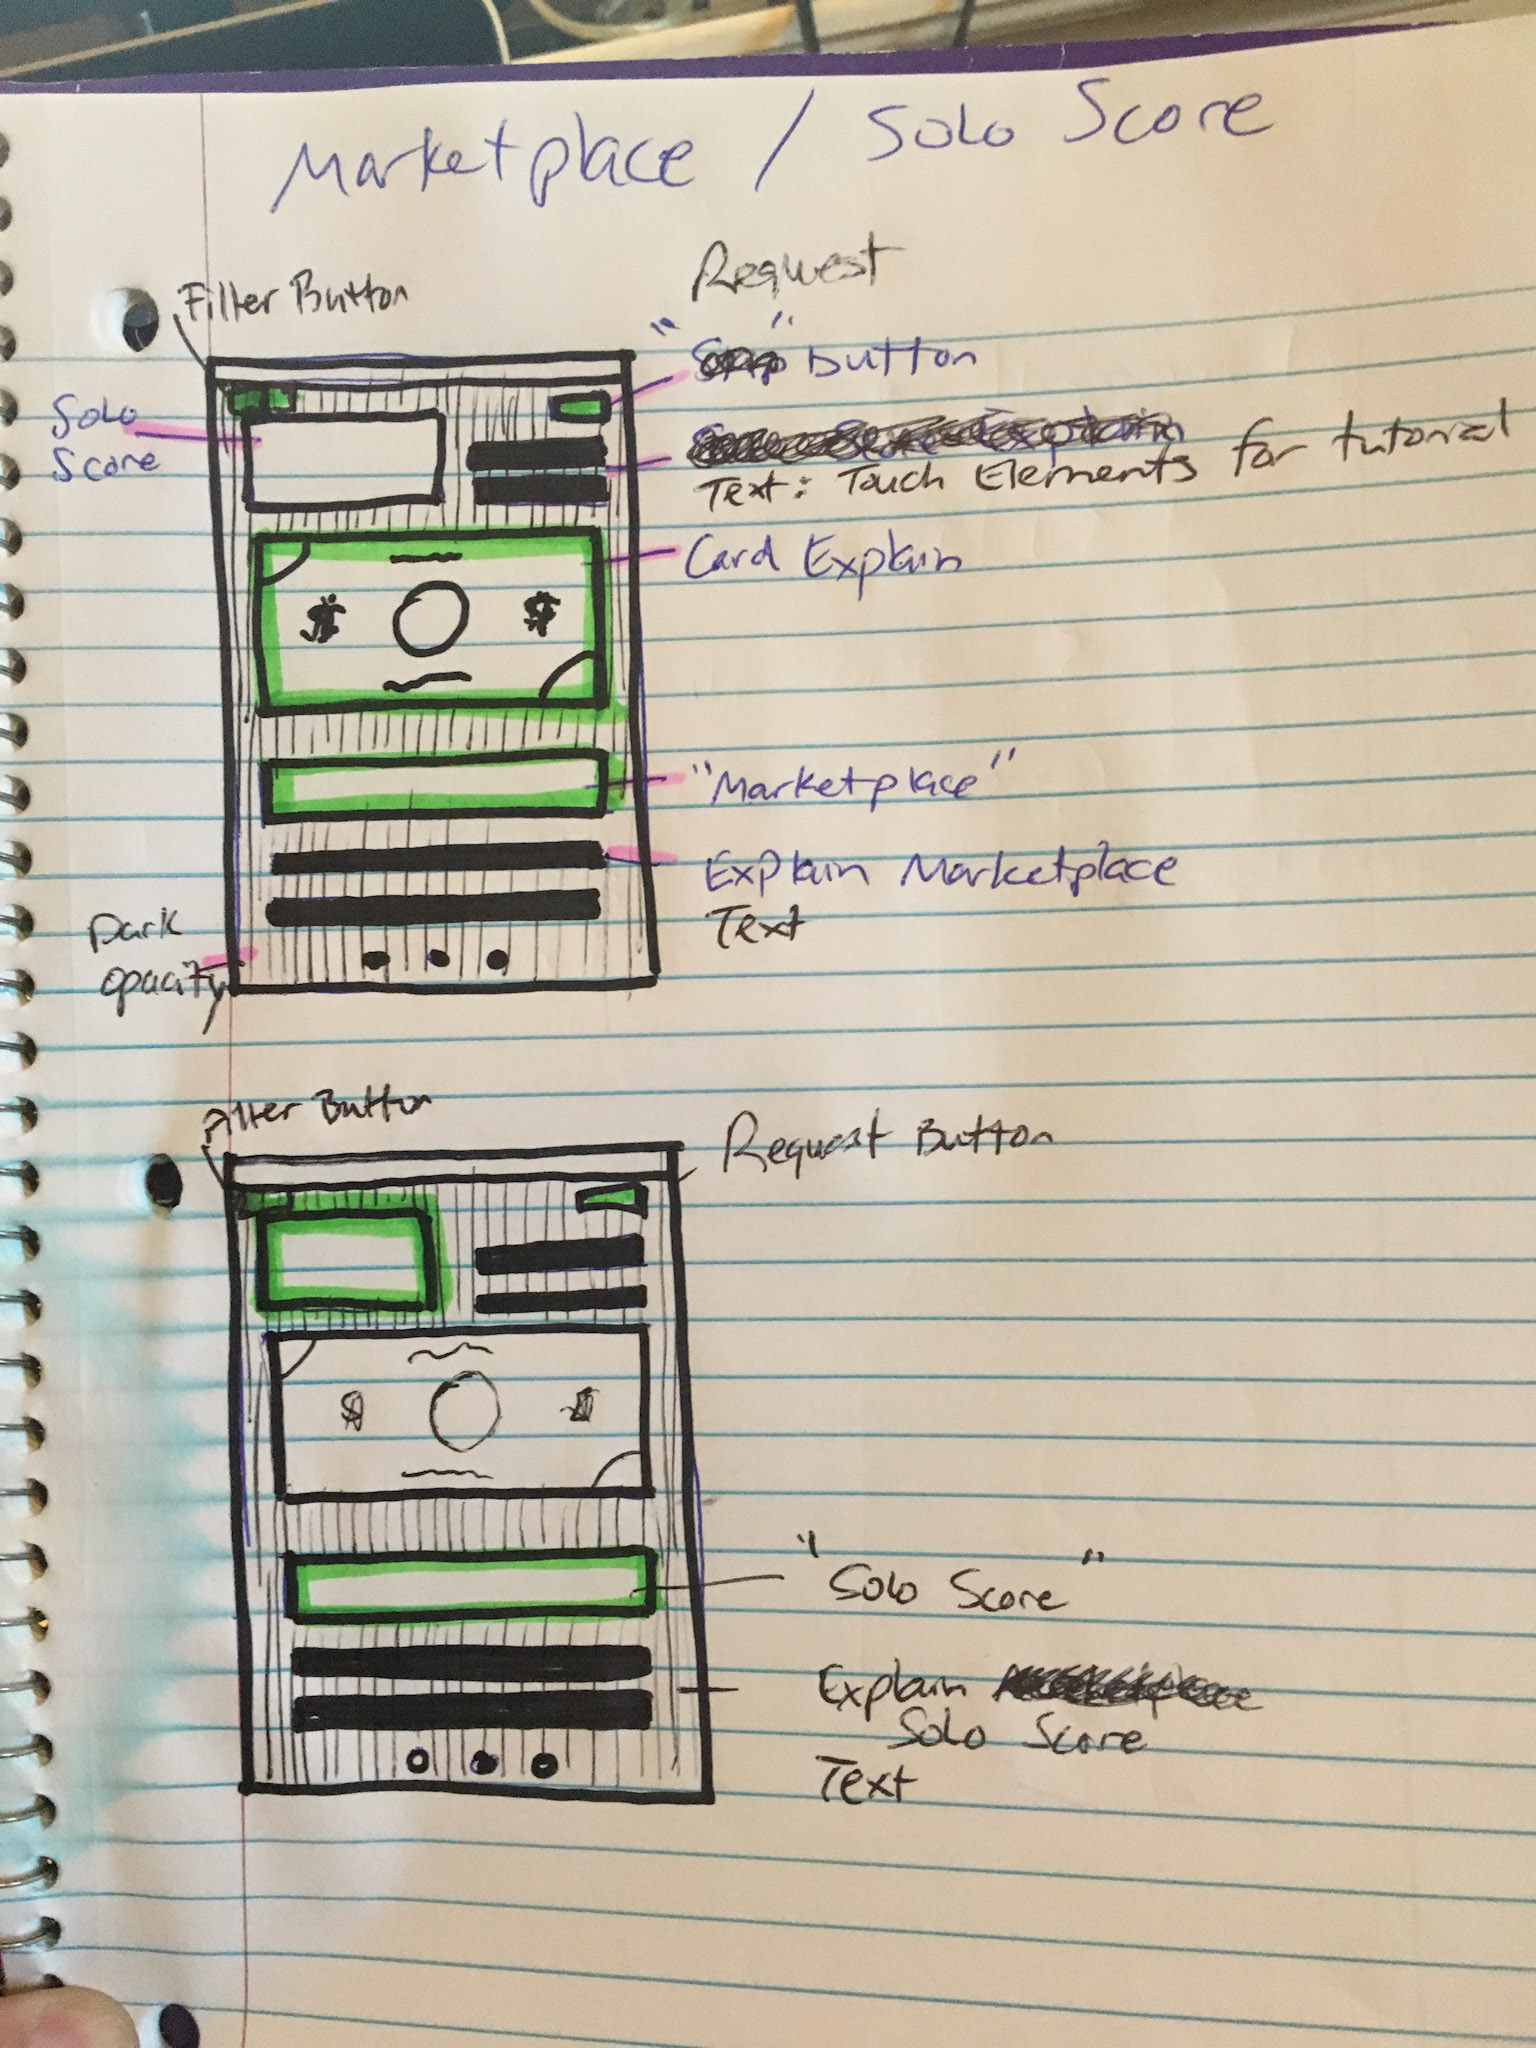 Marketplace / Solo Score
Filter Button
Request
" " button
Solo
Score
Text: Touch Elements for tutorial
Card Explain
$ $
"Marketplace"
Explain Marketplace
Text
Dark
opacity
Filter Button
Request Button
$ $
"Solo Score"
Explain
Solo Score
Text